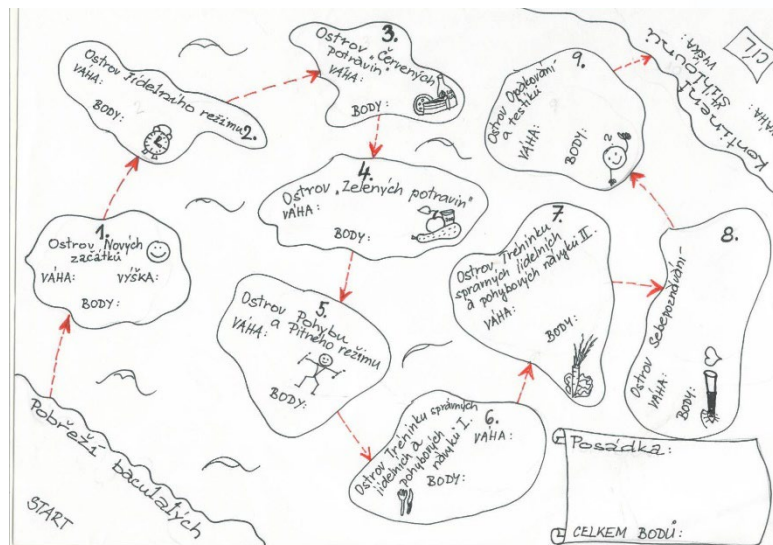 START
Pobřeží baculatých
1.
Ostrov Nových
začátků
VÁHA: VÝŠKA:
BODY:
Ostrov Jídelního režimu 2.
BODY:
3.
Ostrov „Červených
potravin"
VÁHA:
BODY:
4.
Ostrov „Zelených potravin"
VÁHA:
BODY:
5.
Ostrov Pohybu
a Pitného režimu
VÁHA:
BODY:
6.
Ostrov Tréninku správných
jídelních a
pohybových
návyků I.
VÁHA:
BODY:
7.
Ostrov Tréninku
správných jídelních
a pohybových návyků II.
VÁHA:
BODY:
8.
Ostrov Sebepoznávání-
VÁHA:
BODY:
9.
Ostrov Opakování
a testíků
VÁHA:
BODY:
CÍL
Kontinent
Štíhlounů
VÁHA:
VÝŠKA:
Posádka:
CELKEM BODŮ: